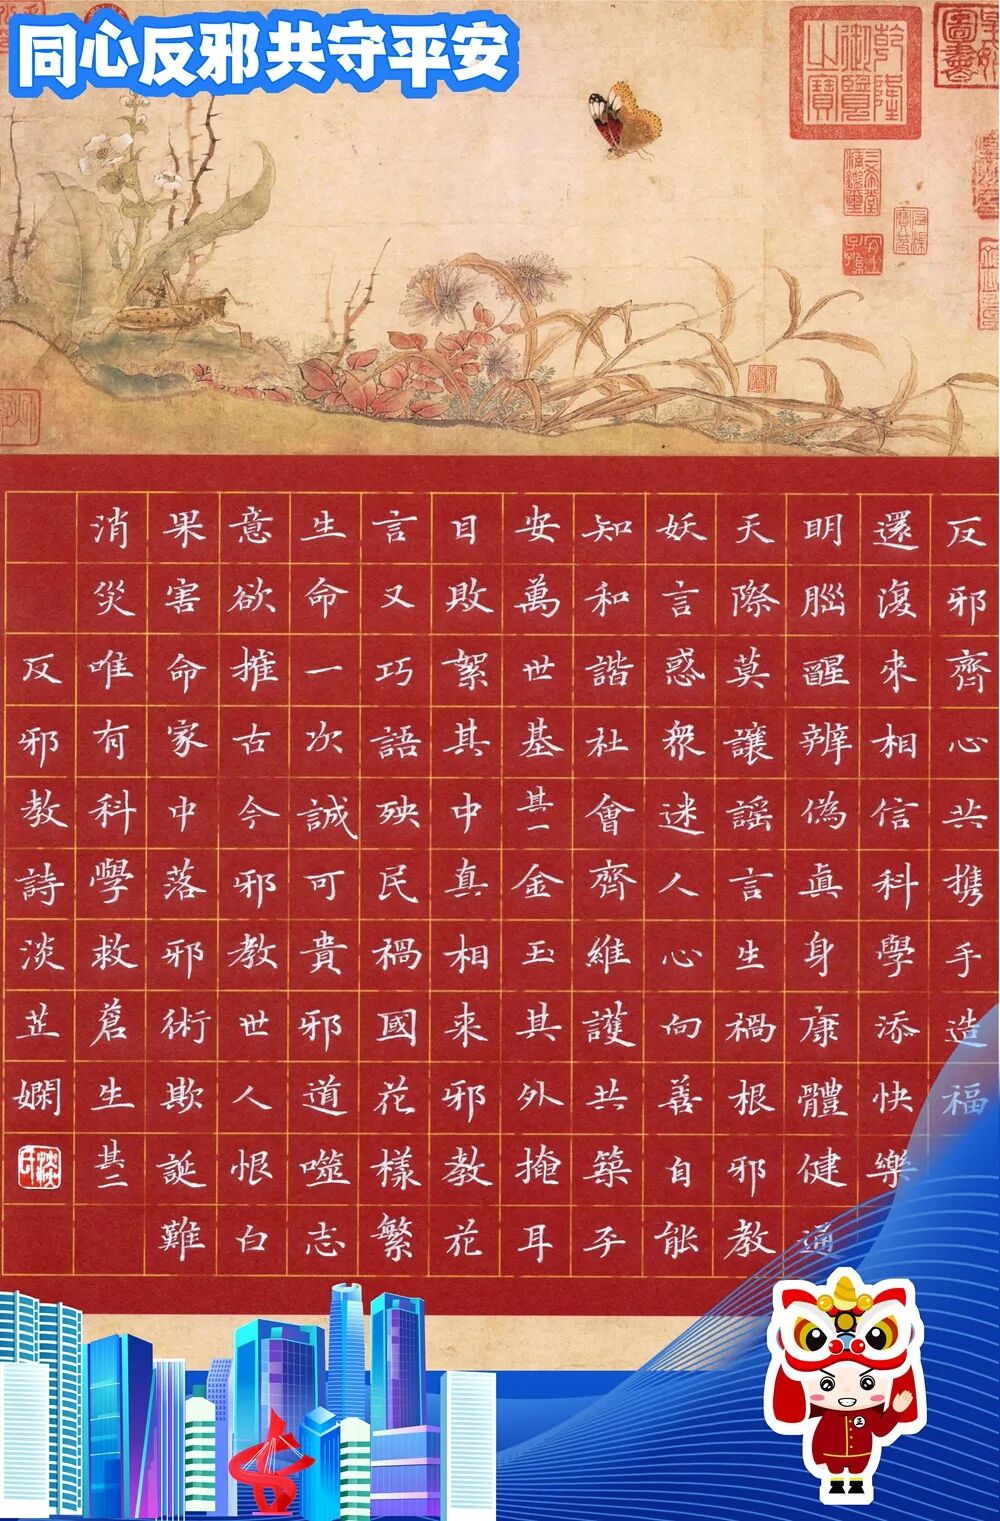 同心反邪共守平安
乾隆御覽之寶
三希堂精鑑璽
宜子孫
反邪齊心共携手造福
還復來相信科學添快樂
明腦醒辨偽真身康體健通
天際莫讓謡言生禍根邪教
妖言惑衆迷人心向善自能
知和諧社會齊維護共築平
安萬世基其一金玉其外掩耳
目敗絮其中真相来邪教花
言又巧語殃民禍國花樣繁
生命一次誠可貴邪道噬志
意欲摧古今邪教世人恨白
果害命家中落邪術欺誕難
消災唯有科學救蒼生其二
反邪教詩淡芷嫻